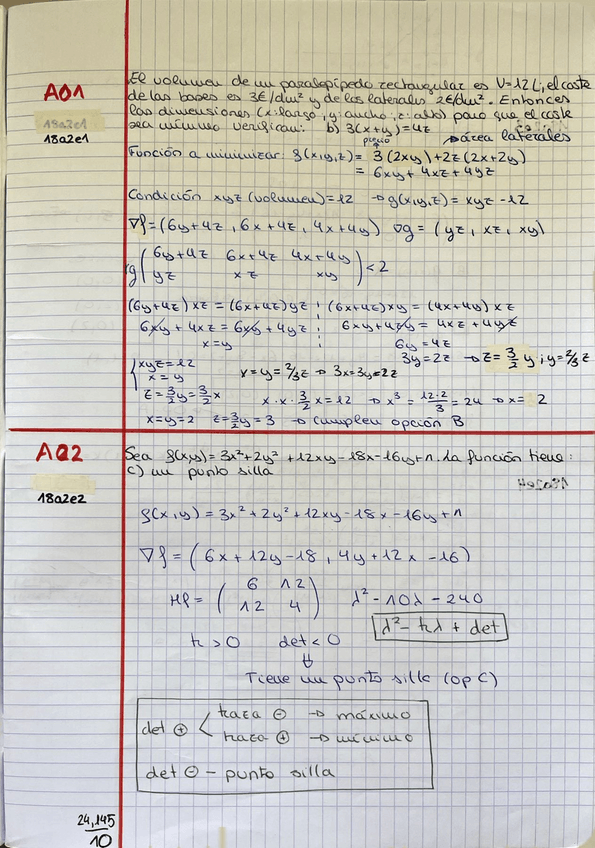 A01
18a2e1
18a2e1
El volumen de un paralepípedo rectangular es V=12 L; el coste
de las bases es 3€/dm² y de los laterales 2€/dm². Entonces
las dimensiones (x:largo, y:ancho, z:alto) para que el coste
sea mínimo verifican: b) 3(x+y)=4z
precio
→ área laterales
Función a minimizar: f(x,y,z) = 3(2xy)+2z(2x+2y)
= 6xy + 4xz + 4yz
Condición xyz (volumen)=12 → g(x,y,z) = xyz - 12
∇f=(6y+4z, 6x+4z, 4x+4y) ∇g = (yz, xz, xy)
rg ( 6y+4z 6x+4z 4x+4y
yz xz xy ) < 2
(6y+4z)xz = (6x+4z)yz (6x+4z)xy = (4x+4y)xz
6xy + 4xz = 6xy + 4yz 6xy+4zy = 4xz + 4yz
x=y 6y = 4z
3y = 2z → z = 3/2 y ; y = 2/3 z
{ xyz = 12
x = y x=y= 2/3 z → 3x=3y=2z
z = 3/2 y = 3/2 x x · x · 3/2 x = 12 → x³ = 12·2/3 = 24 → x = 2
x=y=2 z=3/2 y = 3 → cumplen opción B
A02
18a2e2
Sea f(x,y) = 3x²+2y²+12xy-18x-16y+1. La función tiene:
c) un punto silla
f(x,y) = 3x²+2y²+12xy-18x-16y+1
∇f = (6x+12y-18, 4y+12x-16)
Hf = ( 6 12
12 4 ) λ² - 10λ - 240
λ² - trλ + det
tr > 0 det < 0
⇓
Tiene un punto silla (op C)
det ⊕ < traza ⊖ → máximo
traza ⊕ → mínimo
det ⊖ - punto silla
24,145
10